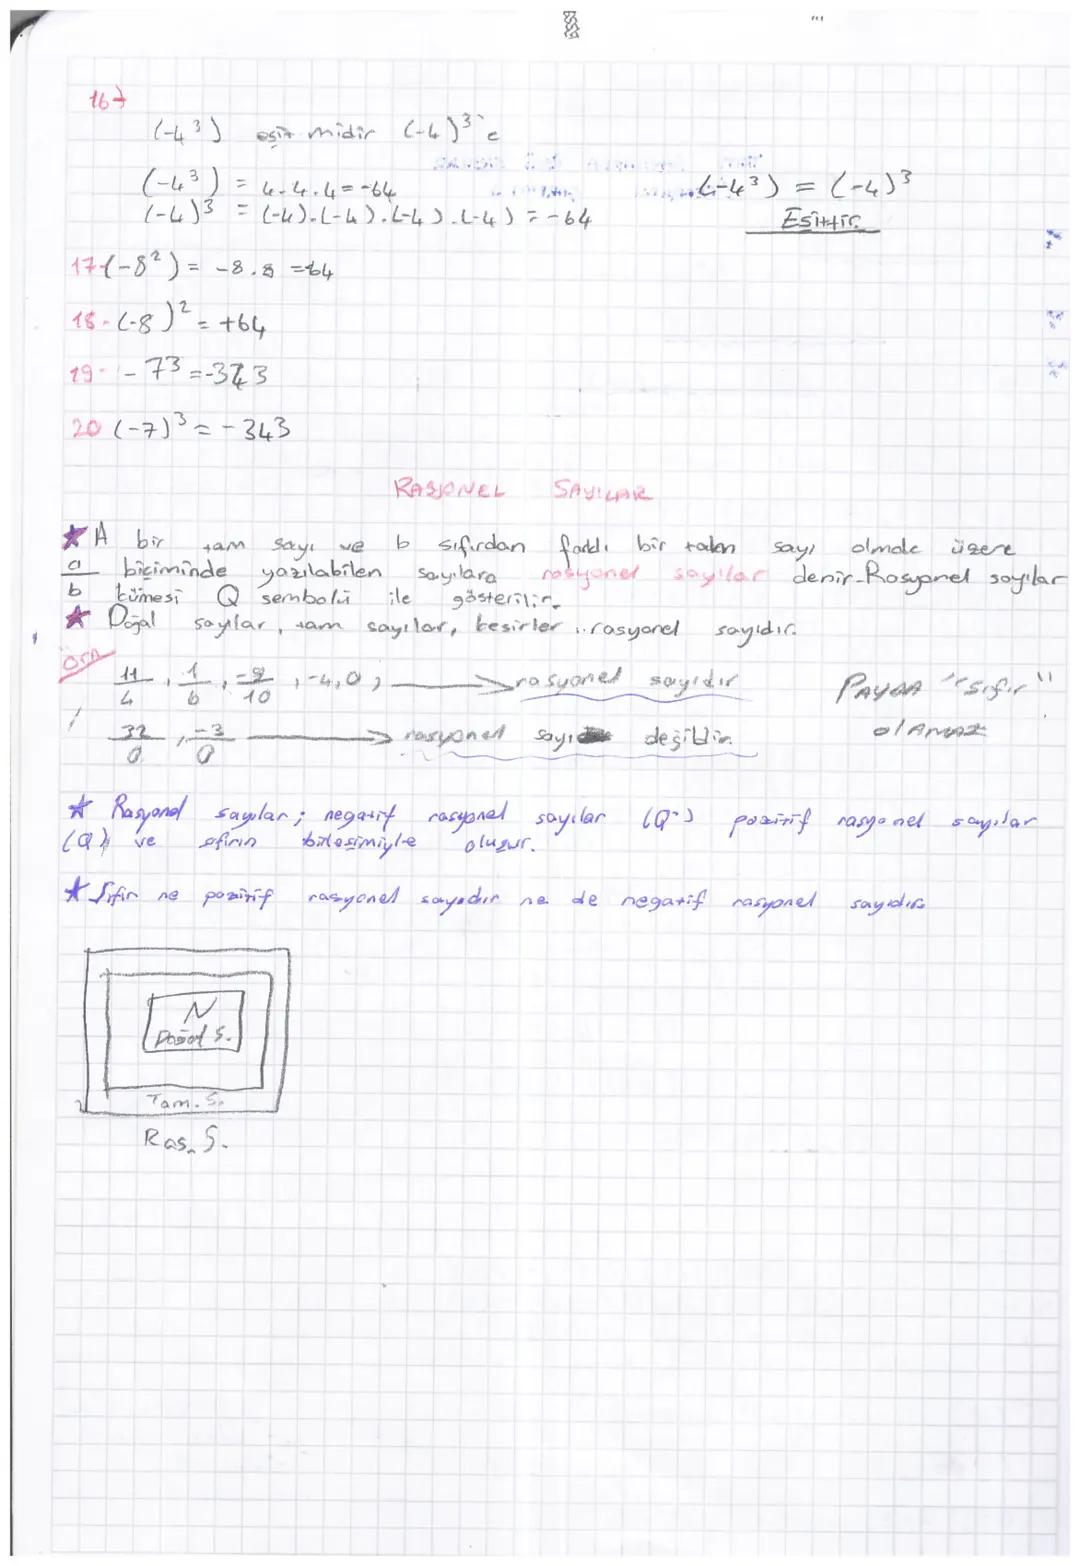 16→
(-4³) eşit midir (-4)³'e
(-4³) = 4.4.4 = -64
(-4)³ = (-4).(-4).(-4).(-4) = -64
(-4³) = (-4)³
Eşittir.
17-(-8²) = -8.8 = 64
18-(-8)² = +64
19- -7³ = -343
20 (-7)³ = -343
RASYONEL SAYILAR
★ A bir tam sayı ve b sıfırdan farklı bir tam sayı olmak üzere
a/b biçiminde yazılabilen sayılara rasyonel sayılar denir. Rasyonel sayılar
kümesi Q sembolü ile gösterilir.
★ Doğal sayılar, tam sayılar, kesirler rasyonel sayıdır.
Örn
11/4, 1/6, -9/10, -4, 0, → rasyonel sayıdır
PAYDA "sıfır"
olamaz
32/0, -3/0 → rasyonel sayı değildir.
★ Rasyonel sayılar; negatif rasyonel sayılar (Q-) pozitif rasyonel sayılar
(Q+) ve sıfırın birleşimiyle oluşur.
★ Sıfır ne pozitif rasyonel sayıdır ne de negatif rasyonel sayıdır.
N
Doğal S.
Tam. S.
Ras. S.